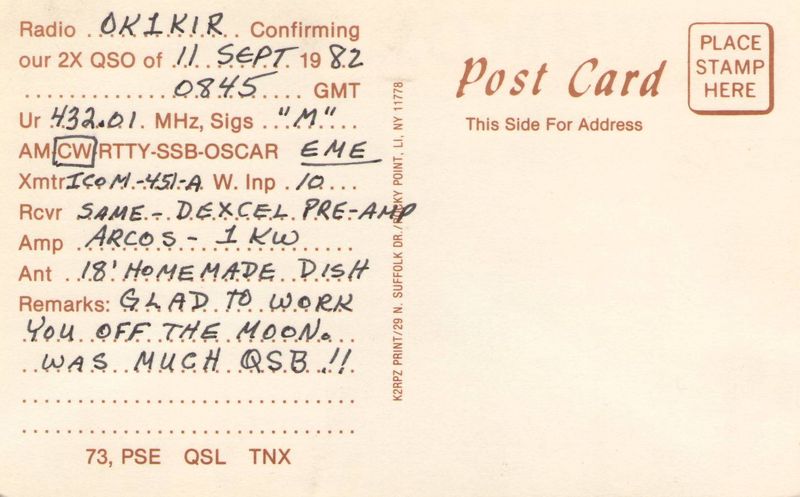 Radio OK1KIR Confirming
our 2X QSO of 11 SEPT 1982
0845 GMT
Ur 432.01 MHz, Sigs "M"
AM CW RTTY-SSB-OSCAR EME
Xmtr ICOM-451-A W. Inp 10
Rcvr SAME - DEXCEL PRE-AMP
Amp ARCOS - 1 KW
Ant 18' HOMEMADE DISH
Remarks: GLAD TO WORK
YOU OFF THE MOON.
WAS MUCH QSB !!
73, PSE QSL TNX
K2RPZ PRINT/29 N. SUFFOLK DR./ROCKY POINT, LI, NY 11778
Post Card
This Side For Address
PLACE
STAMP
HERE